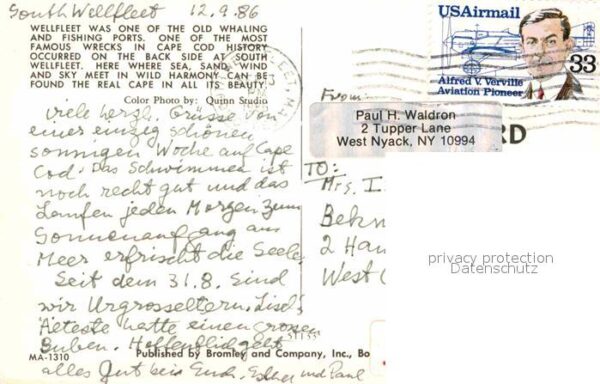 South Wellfleet 12.9.86
WELLFLEET WAS ONE OF THE OLD WHALING
AND FISHING PORTS. ONE OF THE MOST
FAMOUS WRECKS IN CAPE COD HISTORY
OCCURRED ON THE BACK SIDE AT SOUTH
WELLFLEET. HERE WHERE SEA, SAND, WIND
AND SKY MEET IN WILD HARMONY CAN BE
FOUND THE REAL CAPE IN ALL ITS BEAUTY.
Color Photo by: Quinn Studio
viele herzl. Grüsse von
einer einzig schönen
sonnigen Woche auf Cape
Cod. Das Schwimmen ist
noch recht gut und das
Laufen jeden Morgen zum
Sonnenaufgang am
Meer erfrischt die Seele.
Seit dem 31.8. sind
wir Urgrosseltern. Lisel's
Älteste hatte einen grossen
Buben. Hoffentlich geht
alles Gut bei Euch. Esther und Paul
MA-1310
Published by Bromley and Company, Inc., Bo
USAirmail
Alfred V. Verville
Aviation Pioneer
33
From:
Paul H. Waldron
2 Tupper Lane
West Nyack, NY 10994
RD
TO:
Mrs. I.
2 Han
West
privacy protection
Datenschutz